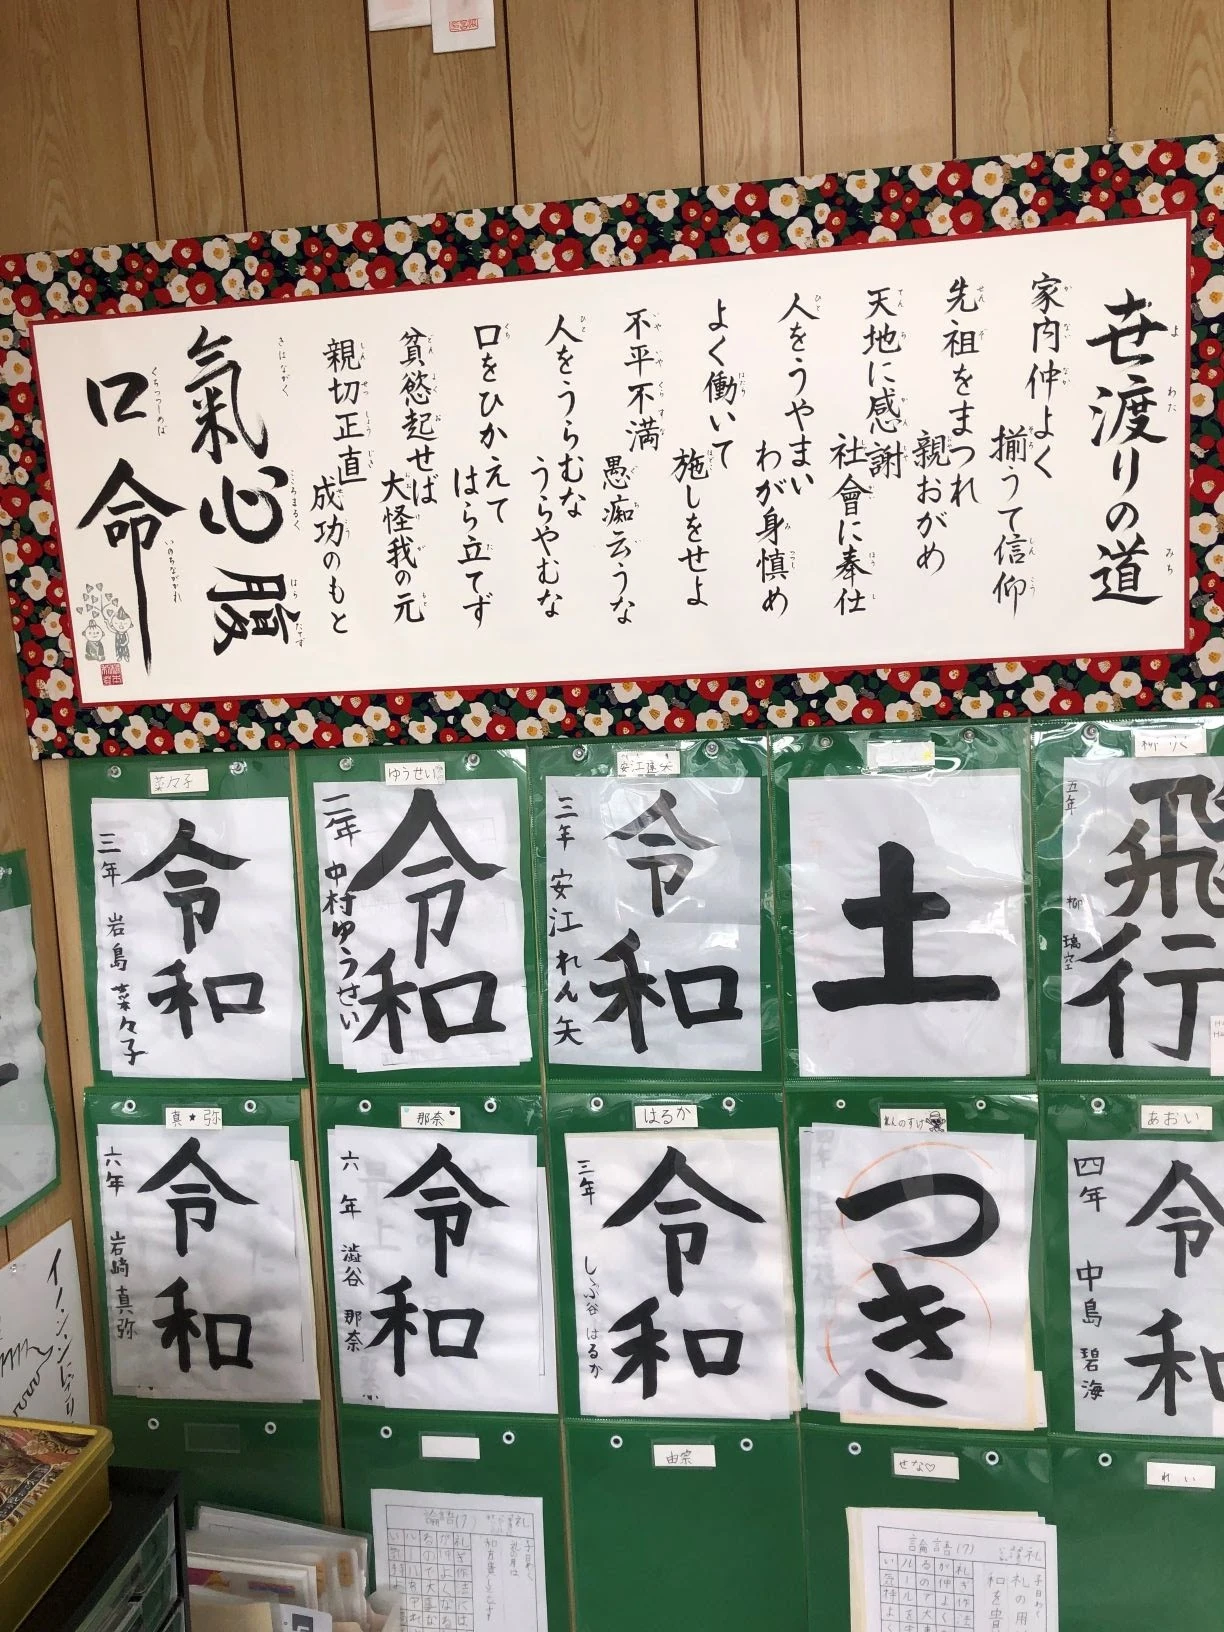 世渡りの道
家内仲よく
揃うて信仰
先祖をまつれ
親おがめ
天地に感謝
社會に奉仕
人をうやまい
わが身慎め
よく働いて
施しをせよ
不平不満
愚痴云うな
人をうらむな
うらやむな
口をひかえて
はら立てず
貧慾起せば
大怪我の元
親切正直
成功のもと
氣心腹
きはながく
こころまるく
はらたてず
口命
くちつつしめば
いのちながかれ
菜々子
令和
三年 岩島 菜々子
ゆうせい
令和
二年 中村ゆうせい
安江蓮矢
令和
三年 安江れん矢
土
柳 りく
飛行
五年 柳 璃空
真★弥
令和
六年 岩崎真弥
那奈
令和
六年 澁谷 那奈
はるか
令和
三年 しぶ谷 はるか
れんのすけ
つき
あおい
令和
四年 中島碧海
由宗
せな♡
れい
論語(7)
論語(7)